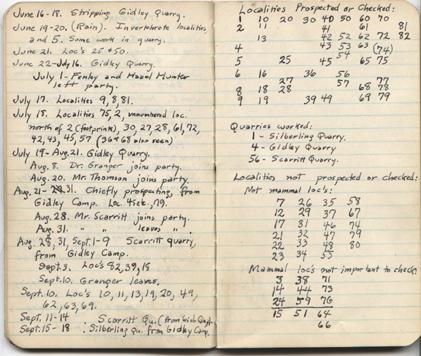 June 16-18. Stripping Gidley Quarry.
June 19-20. (Rain). Invertebrate localities
and 5. Some work in quarry.
June 21. Loc's 25 & 50.
June 22-July 16. Gidley Quarry.
July 1- Fenley and Hazel Hunter
left party.
July 17. Localities 9, 8, 81.
July 18. Localities 75, 2, unnumbered loc.
north of 2 (footprints), 30, 27, 28, 61, 72,
42, 43, 45, 57 (36 & 68 also seen)
July 19-Aug. 21. Gidley Quarry.
Aug. 8. Dr. Granger joins party.
Aug. 20. Mr Thomson joins party.
Aug. 21- 31. Chiefly prospecting, from
Gidley Camp. Loc. 45 etc., 79.
Aug. 28. Mr. Scarritt joins party.
Aug. 31. " " leaves " .
Aug. 28, 31, Sept. 1-9 Scarritt quarry,
from Gidley Camp.
Sept. 3. Loc's 82, 39, 15
Sept. 10. Granger leaves.
Sept. 10. Loc's 10, 11, 13, 19, 20, 49,
62, 63, 69.
Sept. 11-14 Scarritt Qu. (from Gidley Camp).
Sept. 15-18 Silberling Qu. from Gidley Camp.
Localities Prospected or Checked:
1 10 20 30 40 50 60 70
2 11 41 61 81
13 42 52 62 72 82
4 43 53 63 (74)
54
5 25 45 65 75
6 16 36 56
27 57 77
8 18 28 68 78
9 19 39 49 69 79
Quarries worked:
1 - Silberling Quarry.
4 - Gidley Quarry
56 - Scarritt Quarry.
Localities not prospected or checked:
Not mammal loc's:
7 26 35 58
12 29 37 67
17 31 46 74
21 32 47 79
22 33 48 80
23 34 55
Mammal loc's not important to check:
3 38 71
14 44 73
24 59 76
15 51 64
66